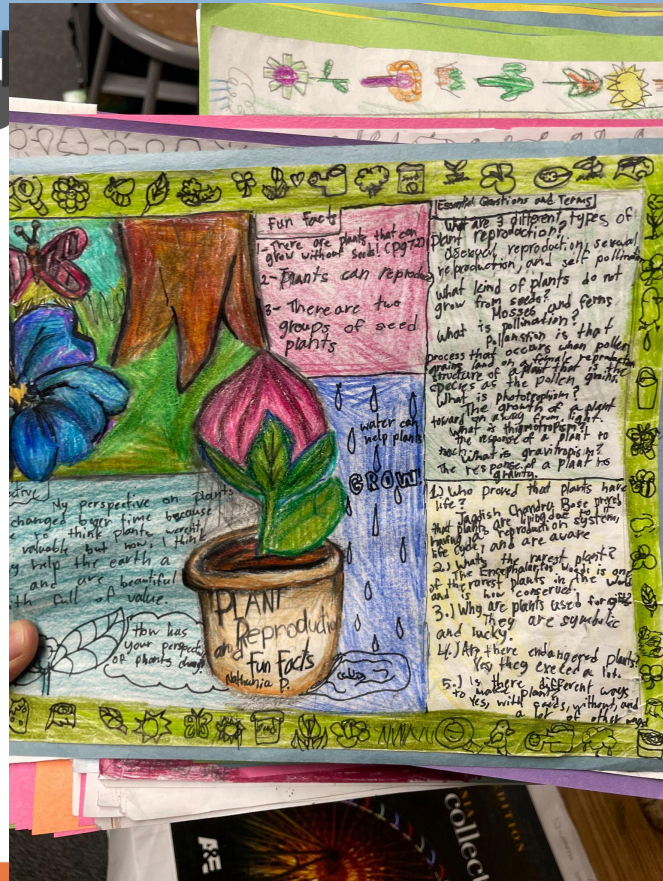 Fun Facts
1- There are plants that can
grow without seeds! (pg 72)
2- Plants can reproduce
3- There are two
groups of seed
plants
water can
help plants
GROW
Essential Questions and Terms
What are 3 different types of
plant reproduction?
asexual reproduction, sexual
reproduction, and self pollination
What kind of plants do not
grow from seeds?
Mosses and ferns
What is pollination?
Pollanation is that
process that occurs when pollen
grains land on a female reproduction
structure of a plant that is the
species as the pollen grains.
What is phototrophism?
The growth of a plant
toward or away from light.
What is thigmotropism?
the response of a plant to
What is gravitropism?
The response of a plant to
gravity.
1.) Who proved that plants have
life?
Jagdish Chandra Bose proved
that plants are living due to it
having a reproduction system,
life cycle, and are aware
2.) Whats the rarest plant?
The Encephalartos Woodis is one
of the rarest plants in the world
and is now conserved.
3.) Why are plants used for gifts?
They are symbolic
and lucky.
4.) Are there endangered plants?
Yes they exceed a lot.
5.) Is there different ways
to make plants
Yes, with seeds, without, and
a lot of other ways
My perspective on plants
changed over time because
to think plants
valuable but now I think
help the earth a
and are beautiful
full of value.
How has
your perspective
of plants change
PLANT
Reproduction
and
Fun Facts
Nathania P.
A&E
collec